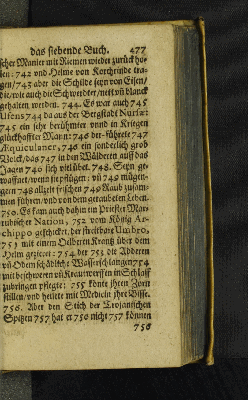 das siebende Buch. 477
scher Manier mit Riemen wieder zurück ho-
len: 742 und Helme von Korckrinde tra-
gen/ 743 aber die Schilde seyn von Eisen/
die/ wie auch die Schwerdter/ nett vñ blanck
gehalten werden. 744. Es war auch 745
Ufens 744 da aus der Bergstadt Nursæ:
745 ein sehr berühmter und in Kriegen
glückhaffter Mann: 746 der führete 747
Æquiculaner, 746 ein sonderlich grob
Volck/ das 747 in den Wäldern auff das
Jagen 740 sich viel übet. 748. Seyn ge-
waffnet/ wenn sie pflügen: vñ 749 mögen-
gern 748 allzeit frischen 749 Raub zusam-
men führen/ und von dem geraubeten Leben.
750. Es kam auch dahin ein Priester Mar-
rubischer Nation, 752 vom König Ar-
chippo geschicket, der streitbare Umbro,
751 mit einem Oelberen Krantz über dem
Helm gezieret: 754 der 753 die Adderen
vñ Odem schädliche Wasserschlangen 754
mit beschweren vñ Kreutwerffen in Schlaff
zubringen pflegte: 755 könte ihren Zorn
stillen/ und heilete mit Medicin ihre Bisse.
756. Aber den Stich der Trojanischen
Spitzen 757 hat er 750 nicht 757 können
756